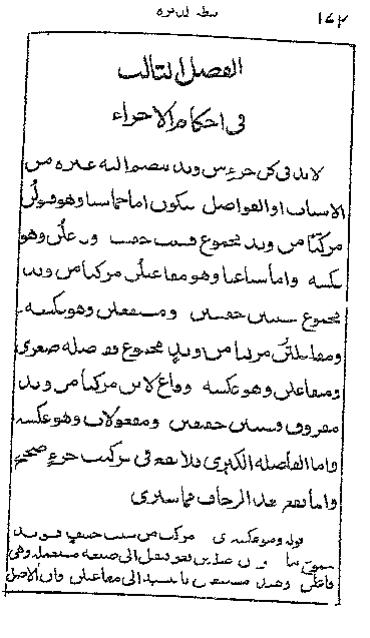 ١٤٢
الفصل الثالث
في احكام الاجزاء
لابد في كل جزء من وتد ينضم اليه غيره من
الاسباب او الفواصل فيكون اما خماسيا وهو فعولن
مركبا من وتد مجموع فسبب خفيف وفاعلن وهو
عكسه واما سباعيا وهو مفاعيلن مركبا من وتد
مجموع فسببين خفيفين ومستفعلن وهو عكسه
ومفاعلتن مركبا من وتد مجموع وفاصله صغرى
ومتفاعلن وهو عكسه وفاع لاتن مركبا من وتد
مفروق فسببين خفيفين ومفعولات وهو عكسه
واما الفاصله الكبرى فلا تقع في تركيب جزء صحيح
وانما تقع بعد الزحاف كما سترى
قوله وهو عكسه اي مركب من سبب خفيف فوتد
مجموع الى صيغة مستعمله وهي
فاعلن الى مفاعيلن فان الاصل